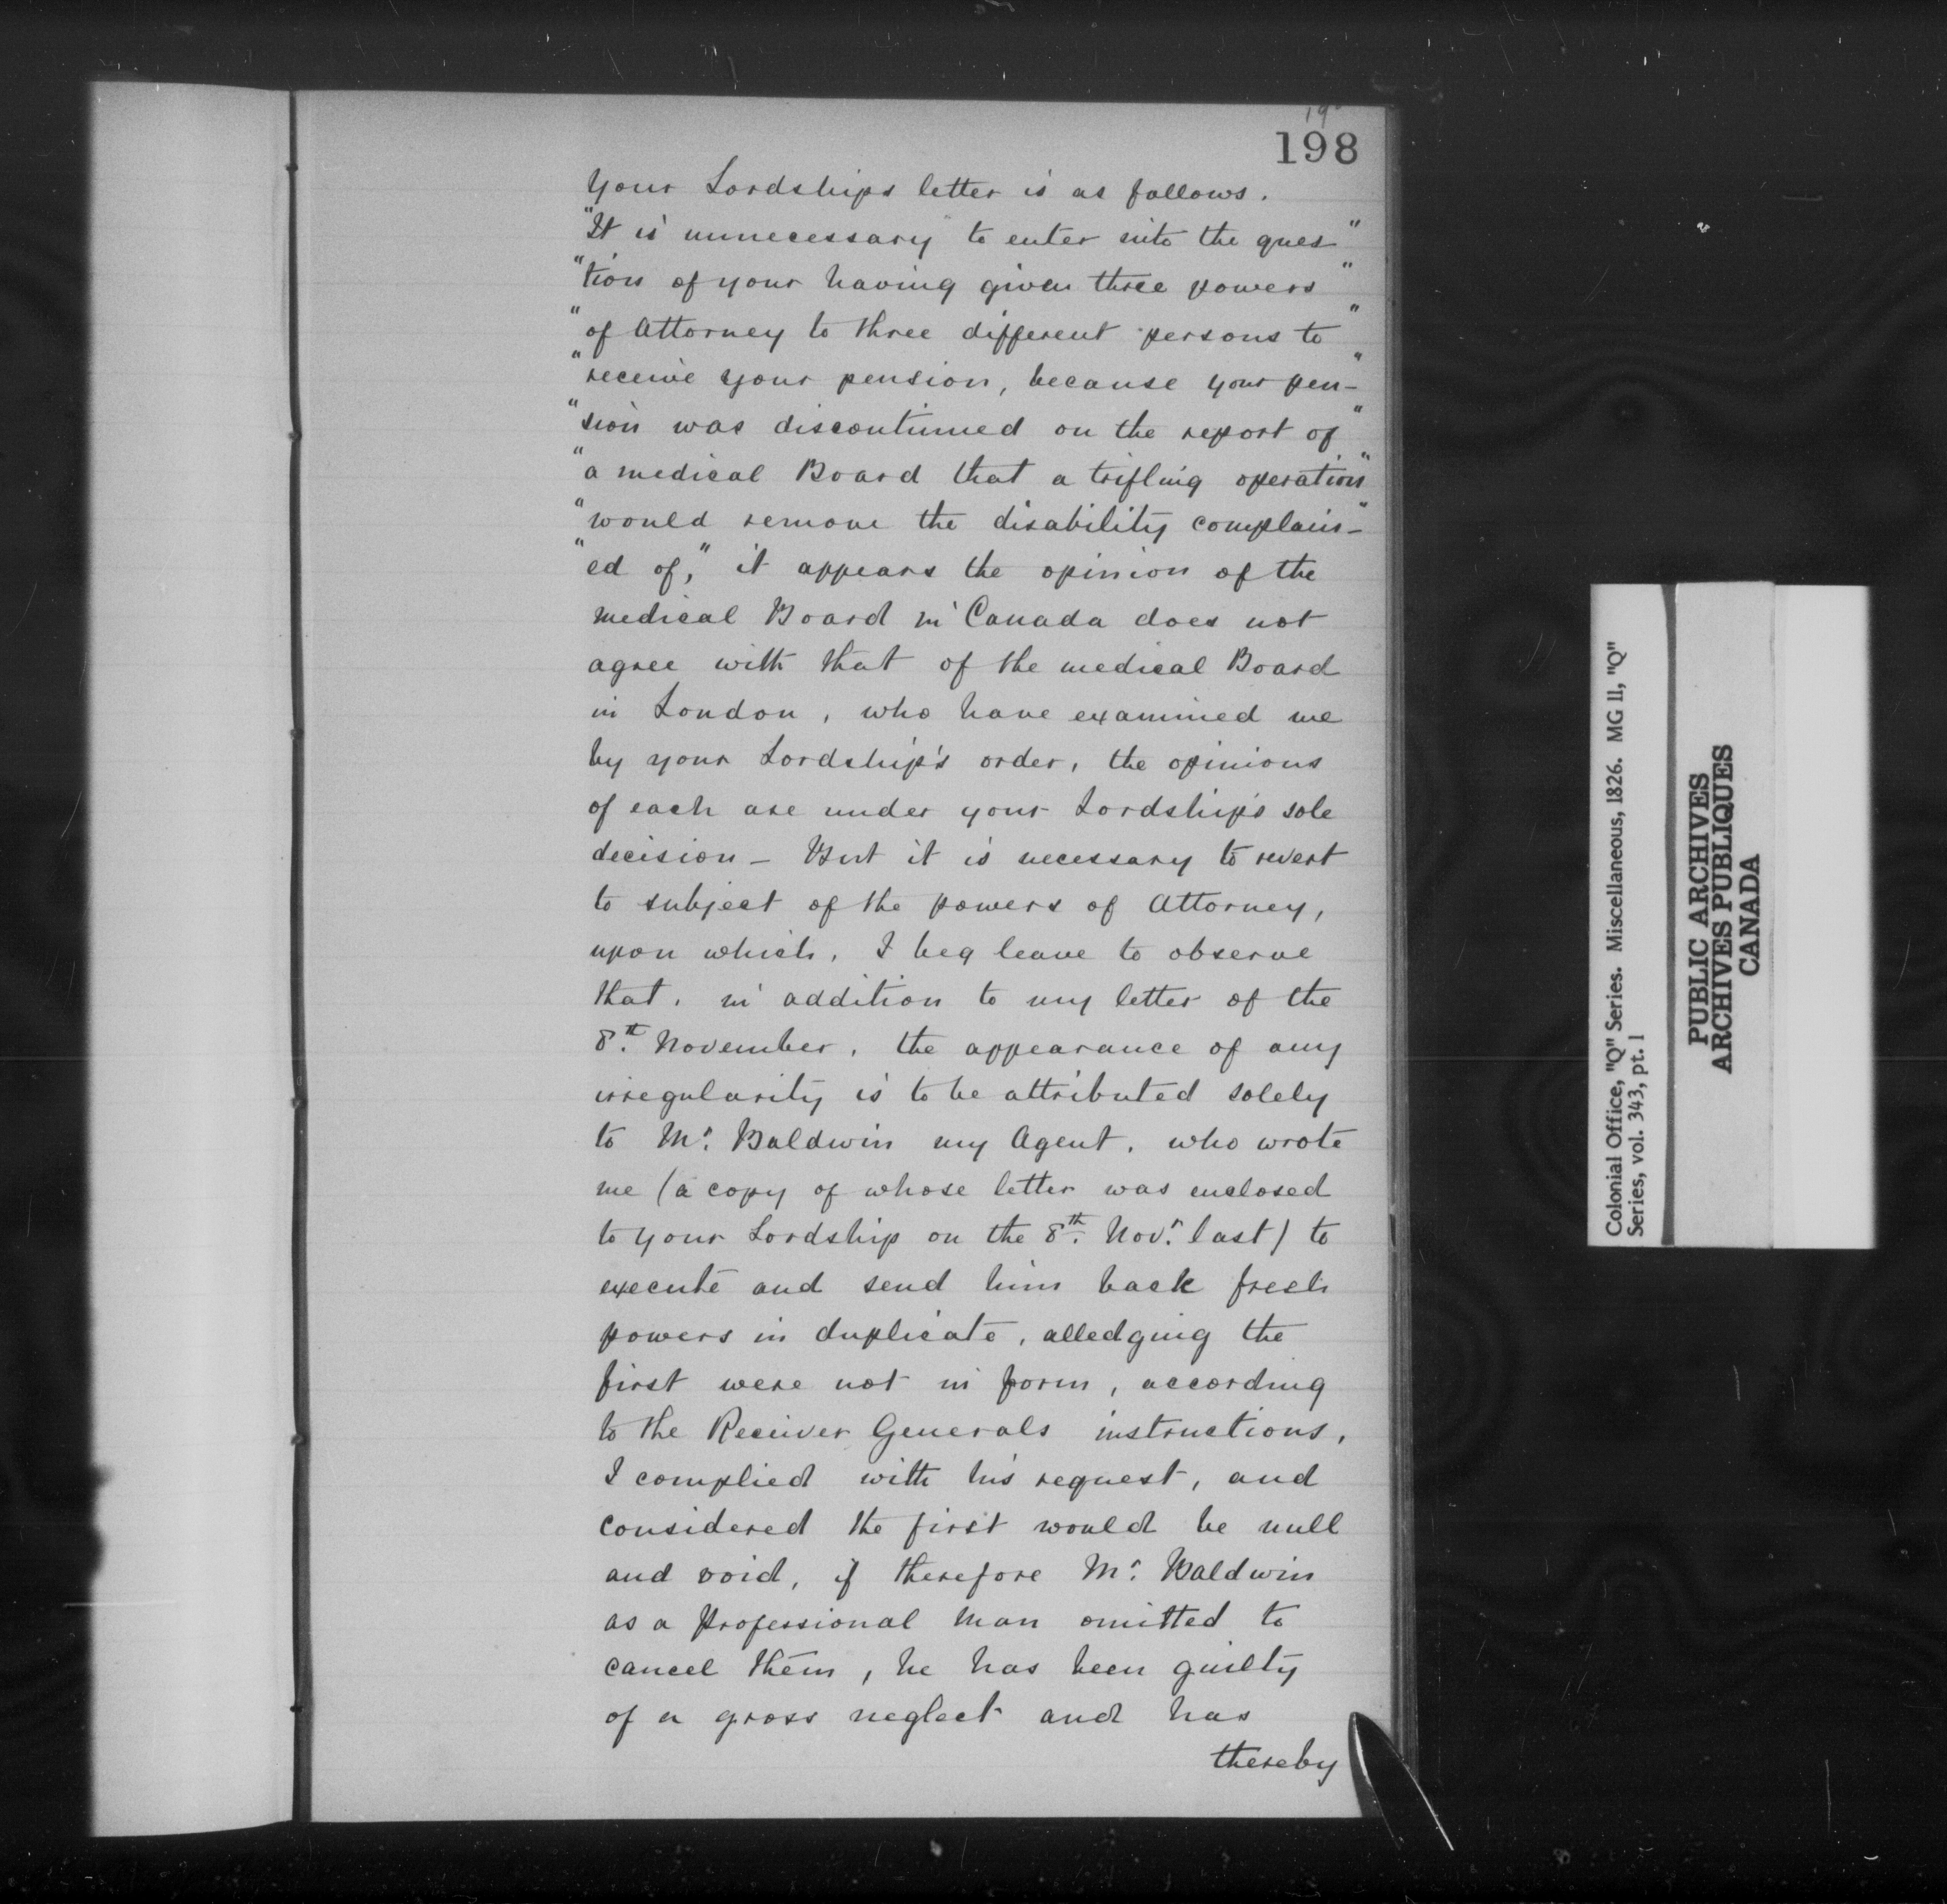 198
Your Lordships letter is as follows.
"It is unnecessary to enter into the ques"
"tion of your having given three powers"
"of Attorney to three different persons to"
"receive your pension, because your pen-"
"sion was discontinued on the report of"
"a medical Board that a trifling operation"
"would remove the disability complain-"
"ed of," it appears the opinion of the
medical Board in Canada does not
agree with that of the medical Board
in London, who have examined me
by your Lordship's order, the opinions
of each are under your Lordship's sole
decision - But it is necessary to revert
to subject of the powers of Attorney,
upon which, I beg leave to observe
that, in addition to my letter of the
8th. November, the appearance of any
irregularity is to be attributed solely
to Mr. Baldwin my Agent, who wrote
me (a copy of whose letter was enclosed
to your Lordship on the 8th. Novr. last) to
execute and send him back fresh
powers in duplicate, alledging the
first were not in form, according
to the Receiver Generals instructions,
I complied with his request, and
considered the first would be null
and void, if therefore Mr. Baldwin
as a professional man omitted to
cancel them, he has been guilty
of a gross neglect and has
thereby
Colonial Office, "Q" Series. Miscellaneous, 1826. MG 11, "Q"
Series, vol. 343, pt. 1
PUBLIC ARCHIVES
ARCHIVES PUBLIQUES
CANADA